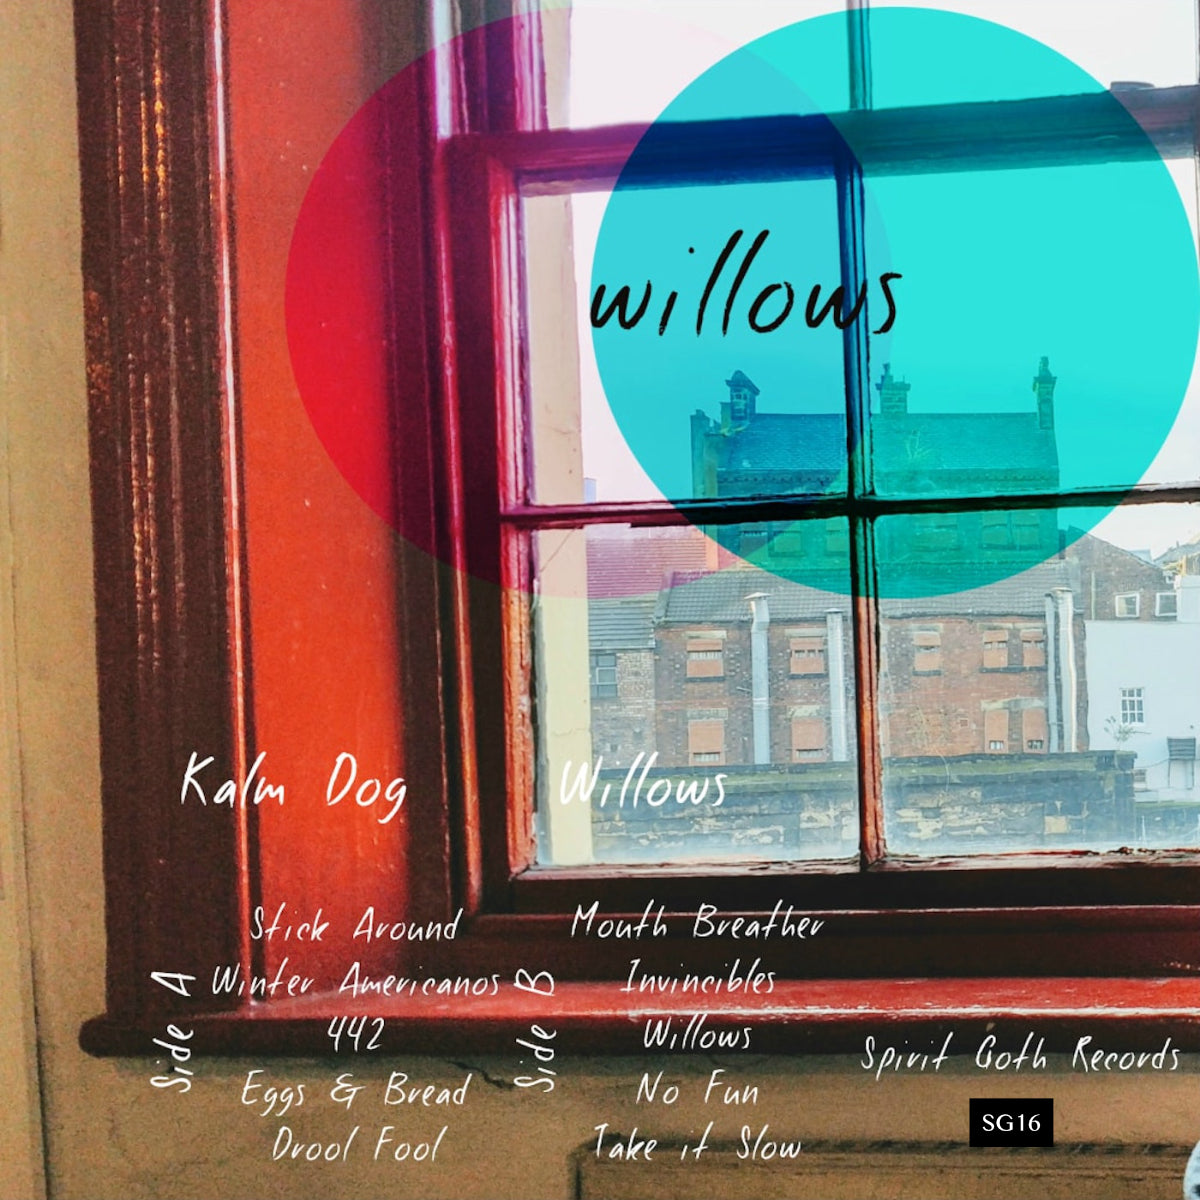 willows
Kalm Dog
Willows
Side A
Stick Around
Winter Americanos
442
Eggs & Bread
Drool Fool
Side B
Mouth Breather
Invincibles
Willows
No Fun
Take it Slow
Spirit Goth Records
SG16